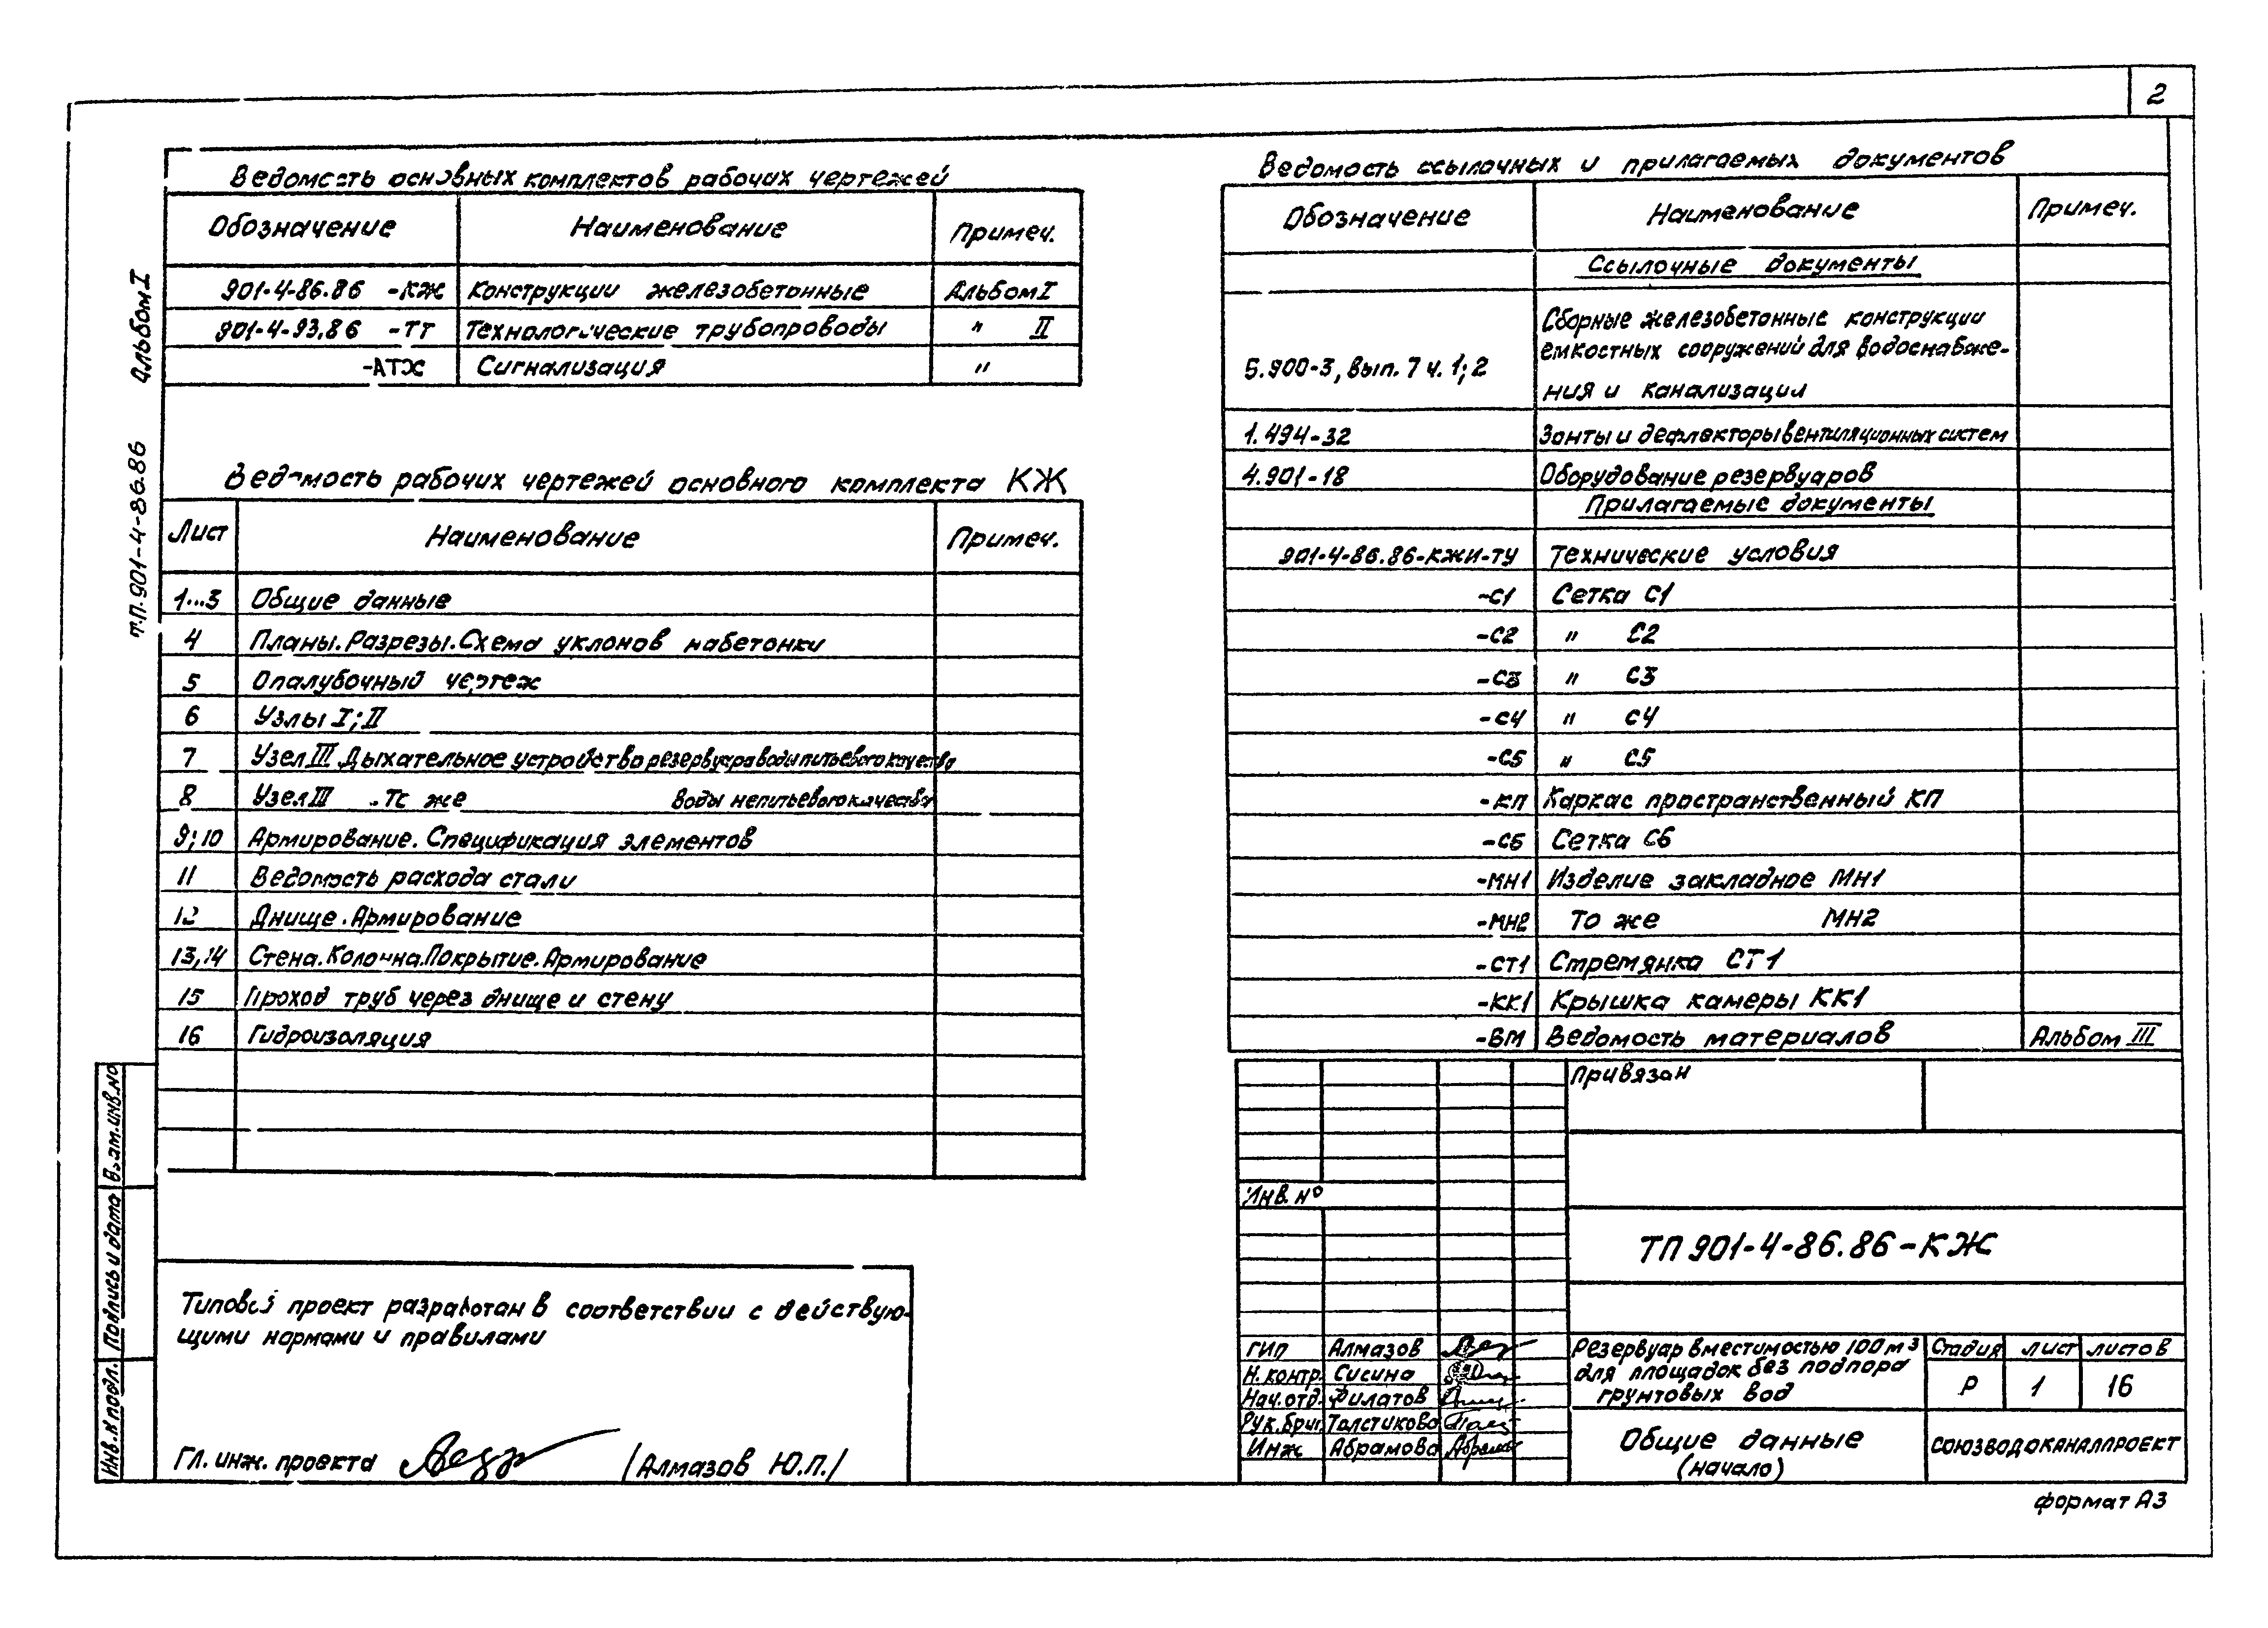 2
Альбом I
т.п. 901-4-86.86
Ведомость основных комплектов рабочих чертежей
Обозначение Наименование Примеч.
901-4-86.86 -КЖ Конструкции железобетонные Альбом I
901-4-93.86 -ТТ Технологические трубопроводы " II
-АТХ Сигнализация "
Ведомость рабочих чертежей основного комплекта КЖ
Лист Наименование Примеч.
1...3 Общие данные
4 Планы. Разрезы. Схема уклонов набетонки
5 Опалубочный чертеж
6 Узлы I; II
7 Узел III Дыхательное устройство резервуара воды питьевого качества
8 Узел III . То же воды непитьевого качества
9; 10 Армирование. Спецификация элементов
11 Ведомость расхода стали
12 Днище. Армирование
13, 14 Стена. Колонна. Покрытие. Армирование
15 Проход труб через днище и стену
16 Гидроизоляция
Типовой проект разработан в соответствии с действую-
щими нормами и правилами
Гл. инж. проекта /Алмазов Ю.П./
Взам. инв. №
Подпись и дата
Инв. № подл.
Ведомость ссылочных и прилагаемых документов
Обозначение Наименование Примеч.
Ссылочные документы
Сборные железобетонные конструкции
емкостных сооружений для водоснабже-
5.900-3, вып. 7 ч. 1; 2
ния и канализации
1.494-32 Зонты и дефлекторы вентиляционных систем
4.901-18 Оборудование резервуаров
Прилагаемые документы
901-4-86.86-КЖИ-ТУ Технические условия
-С1 Сетка С1
-С2 " С2
-С3 " С3
-С4 " С4
-С5 " С5
-КП Каркас пространственный КП
-С6 Сетка С6
-МН1 Изделие закладное МН1
-МН2 То же МН2
-СТ1 Стремянка СТ1
-КК1 Крышка камеры КК1
-ВМ Ведомость материалов Альбом III
Привязан
Инв. №
ТП 901-4-86.86-КЖ
ГИП Алмазов
Н. контр. Сисина
Нач. отд. Филатов
Рук. бриг. Толстикова
Инж Абрамова
Резервуар вместимостью 100 м3
для площадок без подпора
грунтовых вод
Стадия Лист Листов
Р 1 16
Общие данные
(начало)
СОЮЗВОДОКАНАЛПРОЕКТ
формат А3